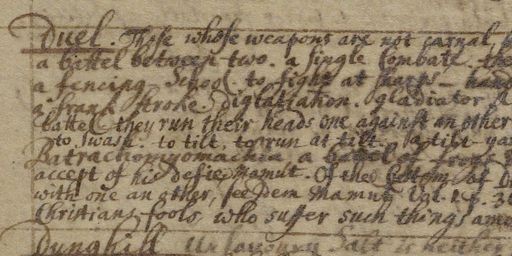 Duel. Those whose weapons are not carnal,
a battel between two. a single Combate. the
a fencing School to fight at
a frank stroke. Digladiation. gladiator.
battel they run their heads one against an other
to swash. to tilt. to run at tilt. a tilt
Batrachomyomachia a battel of frogs
accept of his defie Mamut. Of the Custom of
with one an other, see Dem
Christians fools, who suffer such things
Dunghill Unsavoury Salt is neither